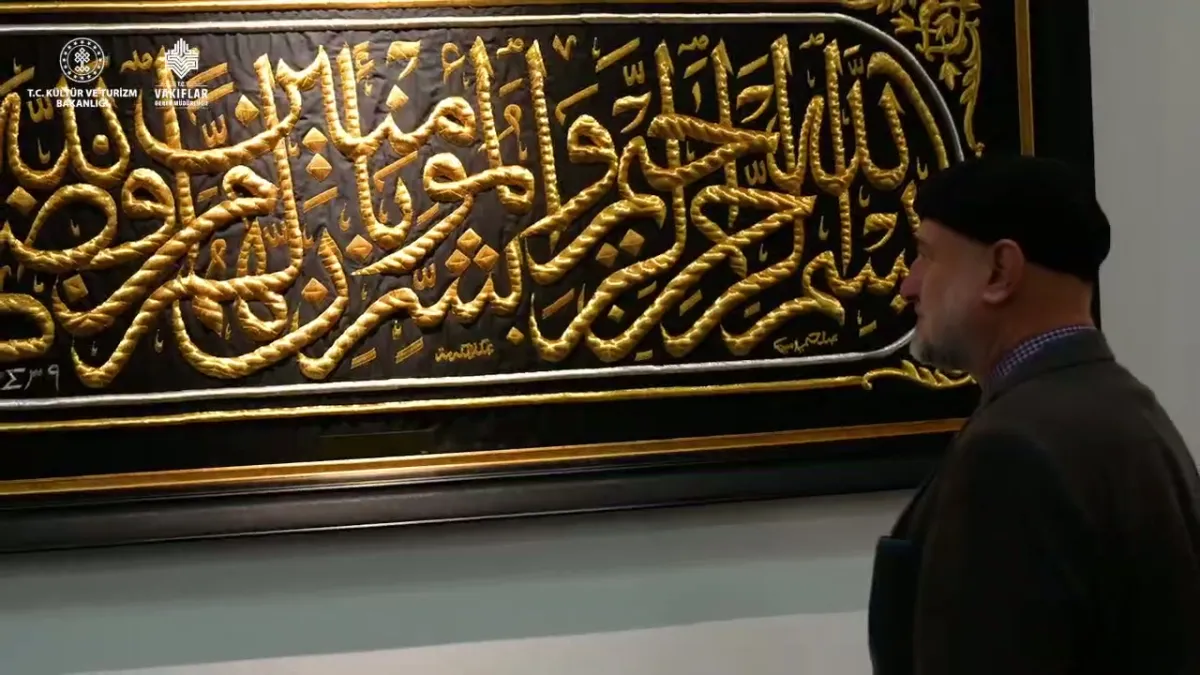 T.C. KÜLTÜR VE TURİZM
BAKANLIĞI
T.C.
VAKIFLAR
GENEL MÜDÜRLÜĞÜ
بسم الله الرحمن الرحيم وبشر المؤمنين بان لهم من الله